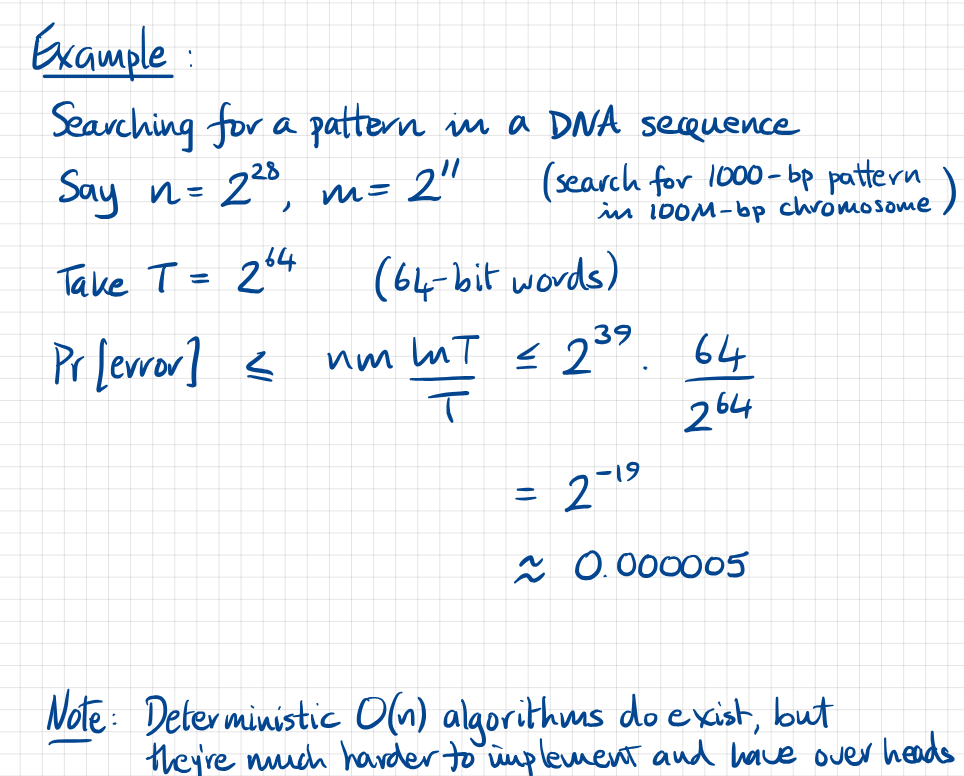 Example :
Searching for a pattern in a DNA sequence
Say n = 2^28, m = 2^11 (search for 1000-bp pattern
in 100M-bp chromosome)
Take T = 2^64 (64-bit words)
Pr[error] ≤ nm lnT/T ≤ 2^39 · 64/2^64
= 2^-19
≈ 0.000005
Note: Deterministic O(n) algorithms do exist, but
they're much harder to implement and have over heads